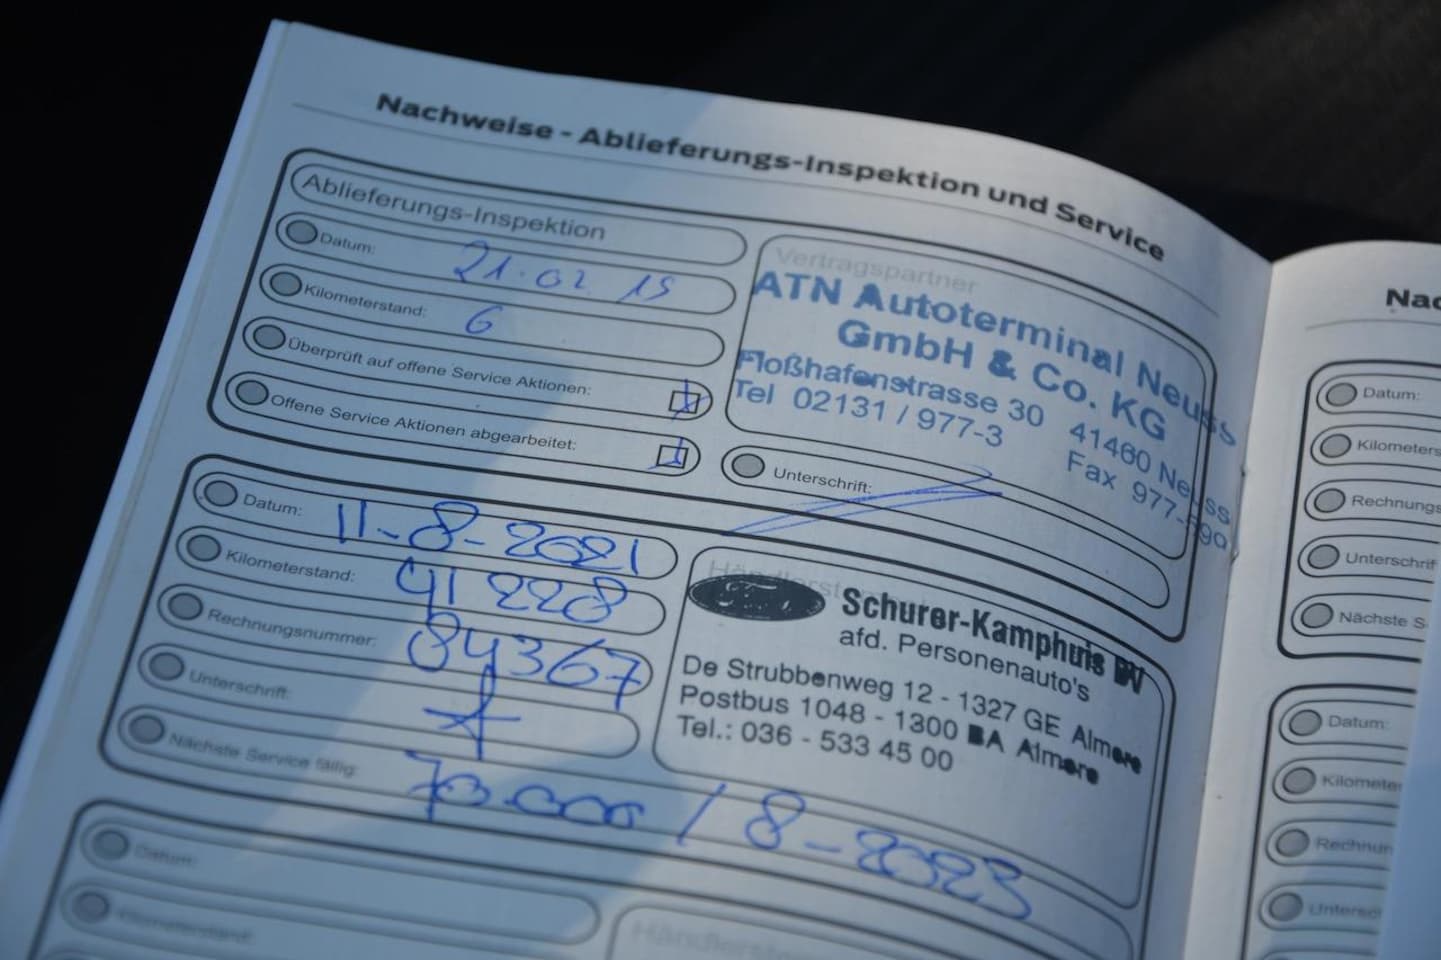 Nachweise - Ablieferungs-Inspektion und Service
Ablieferungs-Inspektion
Datum: 21.02 19
Kilometerstand: 6
Überprüft auf offene Service Aktionen:
Offene Service Aktionen abgearbeitet:
Vertragspartner
ATN Autoterminal Neuss
GmbH & Co. KG
Floßhafenstrasse 30 41460 Neuss
Tel 02131 / 977-3 Fax 977-590
Unterschrift:
Datum: 11-8-2021
Kilometerstand: 41 228
Rechnungsnummer: 84367
Unterschrift:
Nächste Service fällig: 70.000 / 8-2023
Ford Schurer-Kamphuis BV
afd. Personenauto's
De Strubbenweg 12 - 1327 GE Almere
Postbus 1048 - 1300 BA Almere
Tel.: 036 - 533 45 00
Datum:
Kilometerstand:
Nac
Datum:
Kilometers
Rechnungs
Unterschrif
Nächste S
Datum:
Kilometer
Rechnun
Untersc